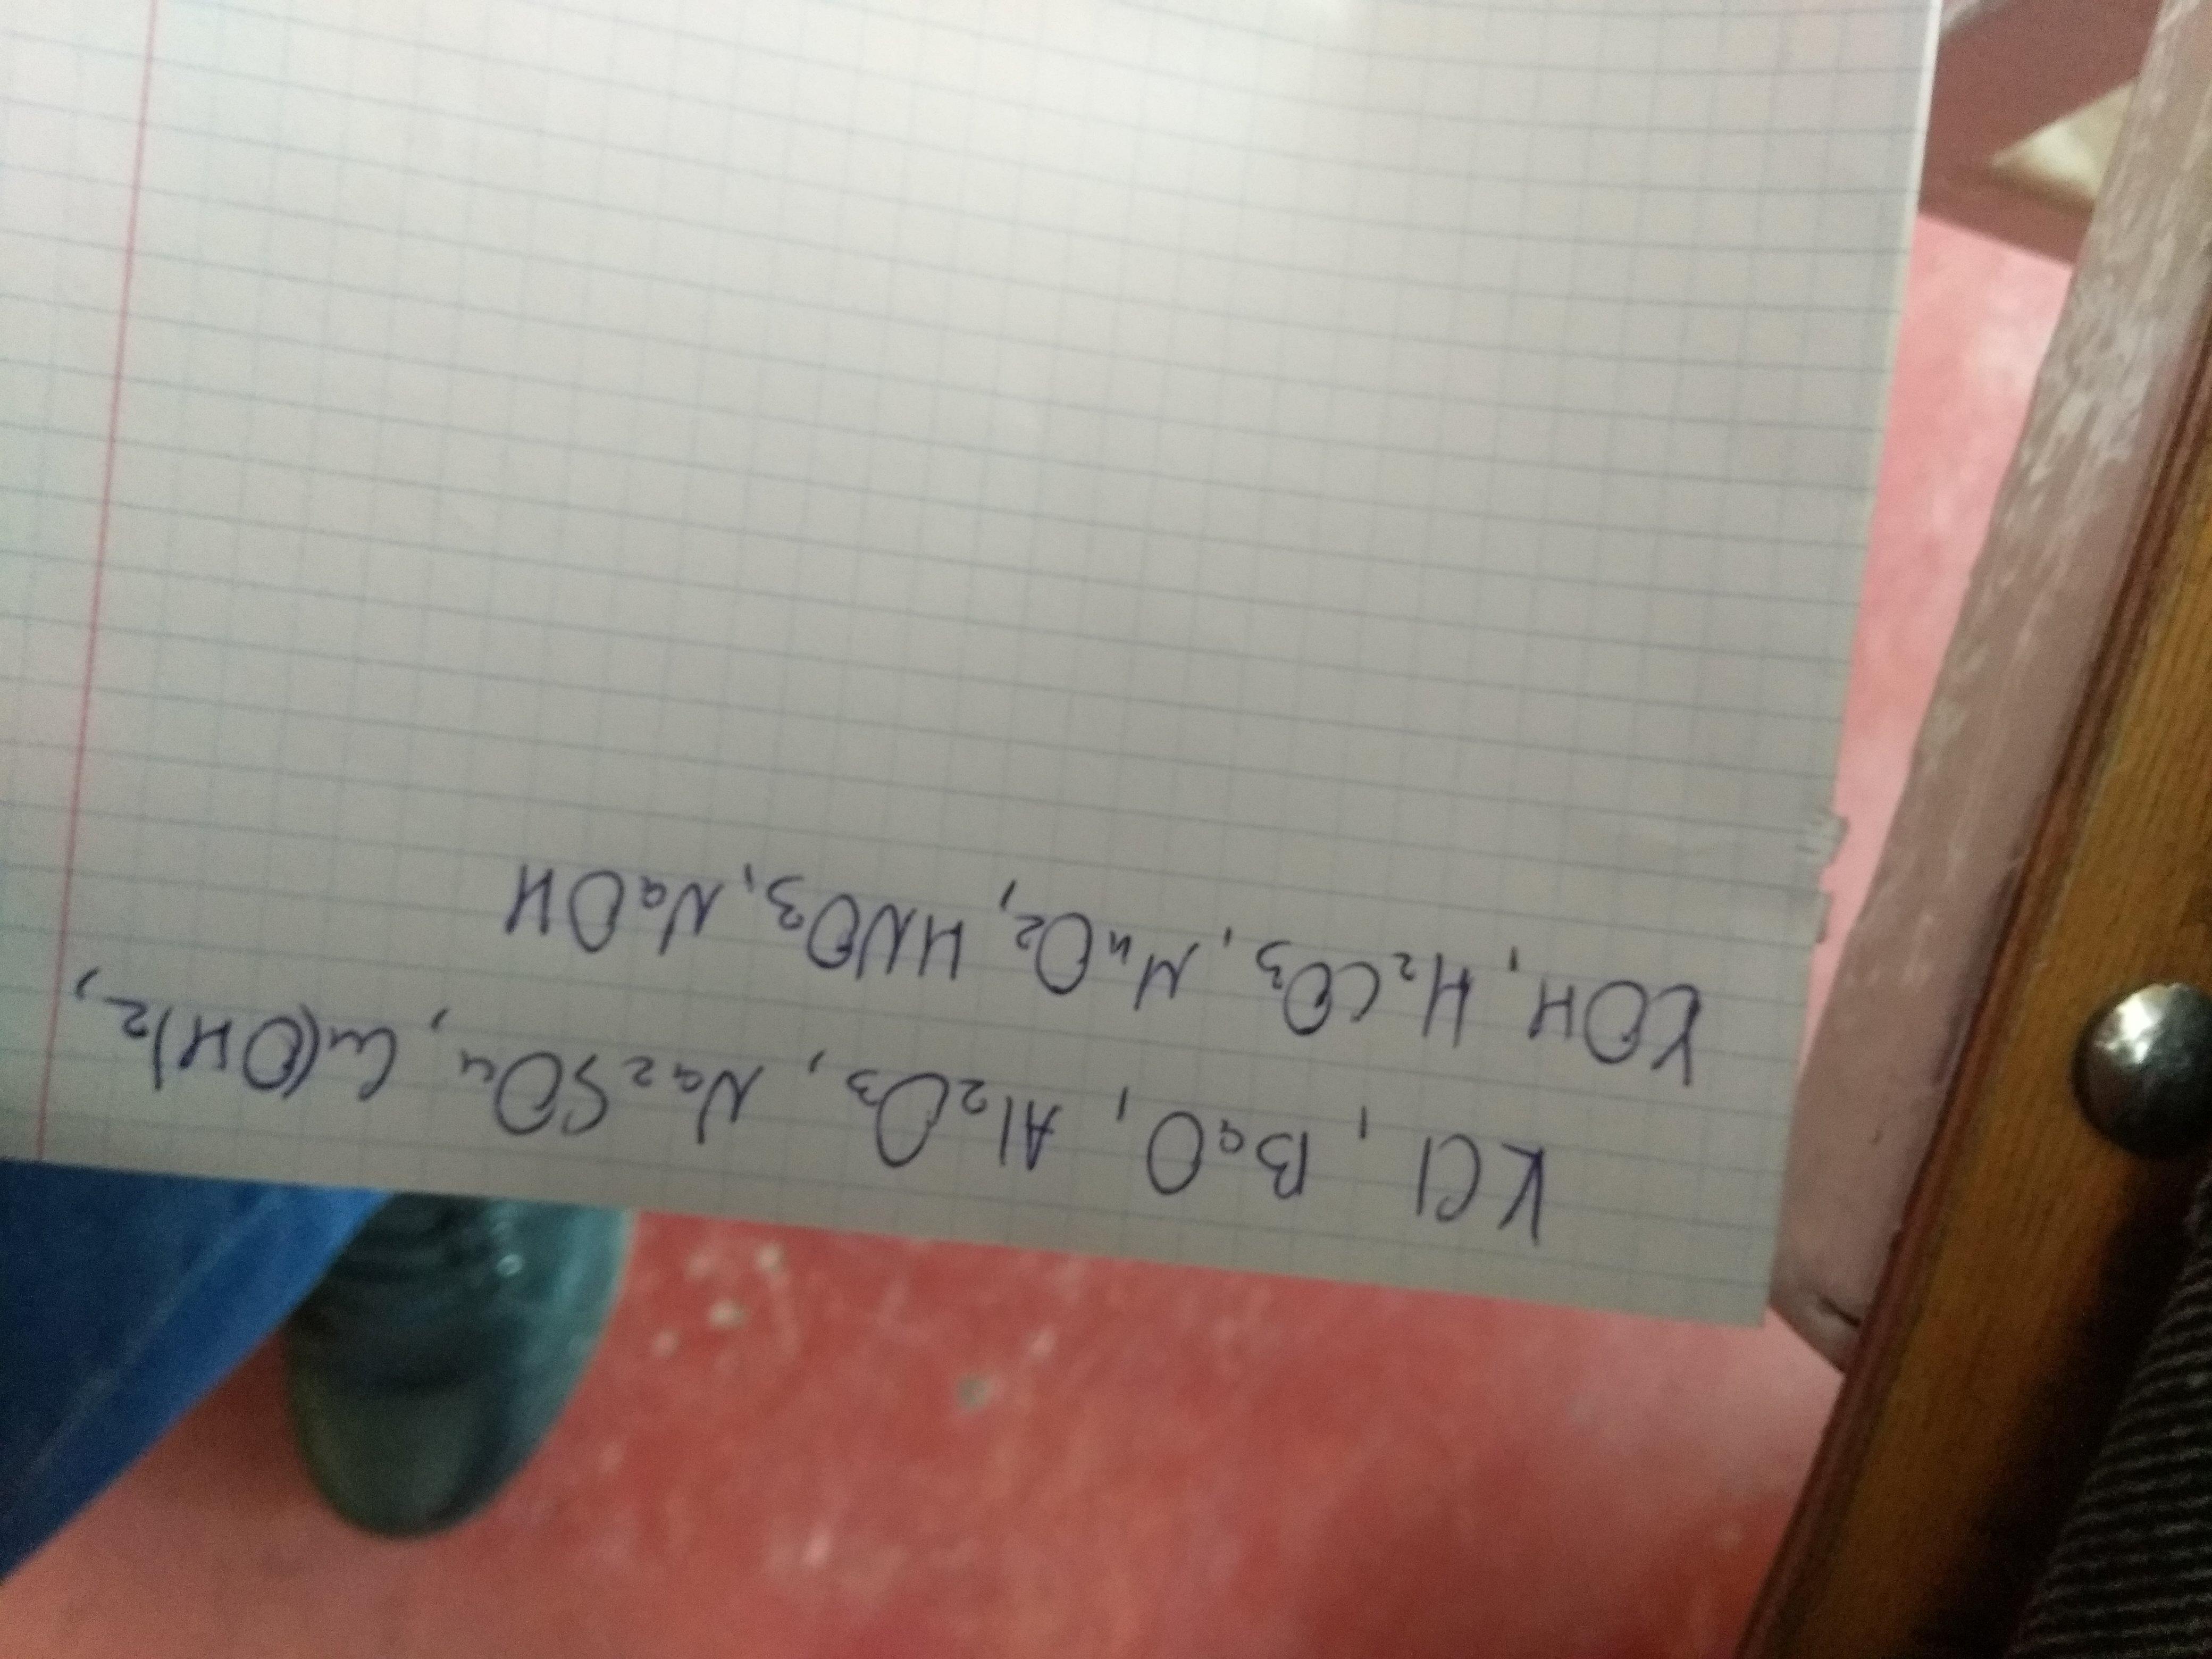 KCl, BaO, Al₂O₃, Na₂SO₄, Cu(OH)₂,
KOH, H₂CO₃, MnO₂, HNO₃, NaOH